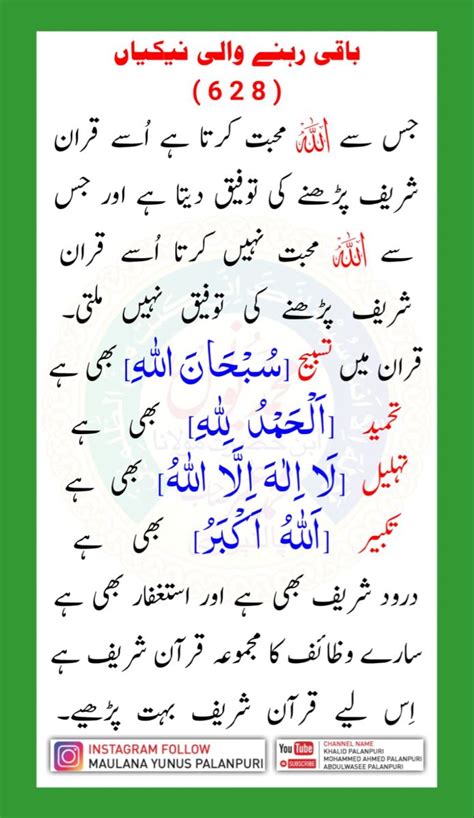 باقی رہنے والی نیکیاں
(628)
جس سے اللہ محبت کرتا ہے اُسے قران
شریف پڑھنے کی توفیق دیتا ہے اور جس
سے اللہ محبت نہیں کرتا اُسے قران
شریف پڑھنے کی توفیق نہیں ملتی۔
قران میں تسبیح [سُبْحَانَ اللهِ] بھی ہے
تحمید [اَلْحَمْدُ لِلهِ] بھی ہے
تہلیل [لَا اِلٰهَ اِلَّا اللهُ] بھی ہے
تکبیر [اَللهُ اَكْبَرُ] بھی ہے
درود شریف بھی ہے اور استغفار بھی ہے
سارے وظائف کا مجموعہ قرآن شریف ہے
اِس لیے قرآن شریف بہت پڑھیے۔
INSTAGRAM FOLLOW
MAULANA YUNUS PALANPURI
You Tube
SUBSCRIBE
CHANNEL NAME
KHALID PALANPURI
MOHAMMED AHMED PALANPURI
ABDULWASEE PALANPURI